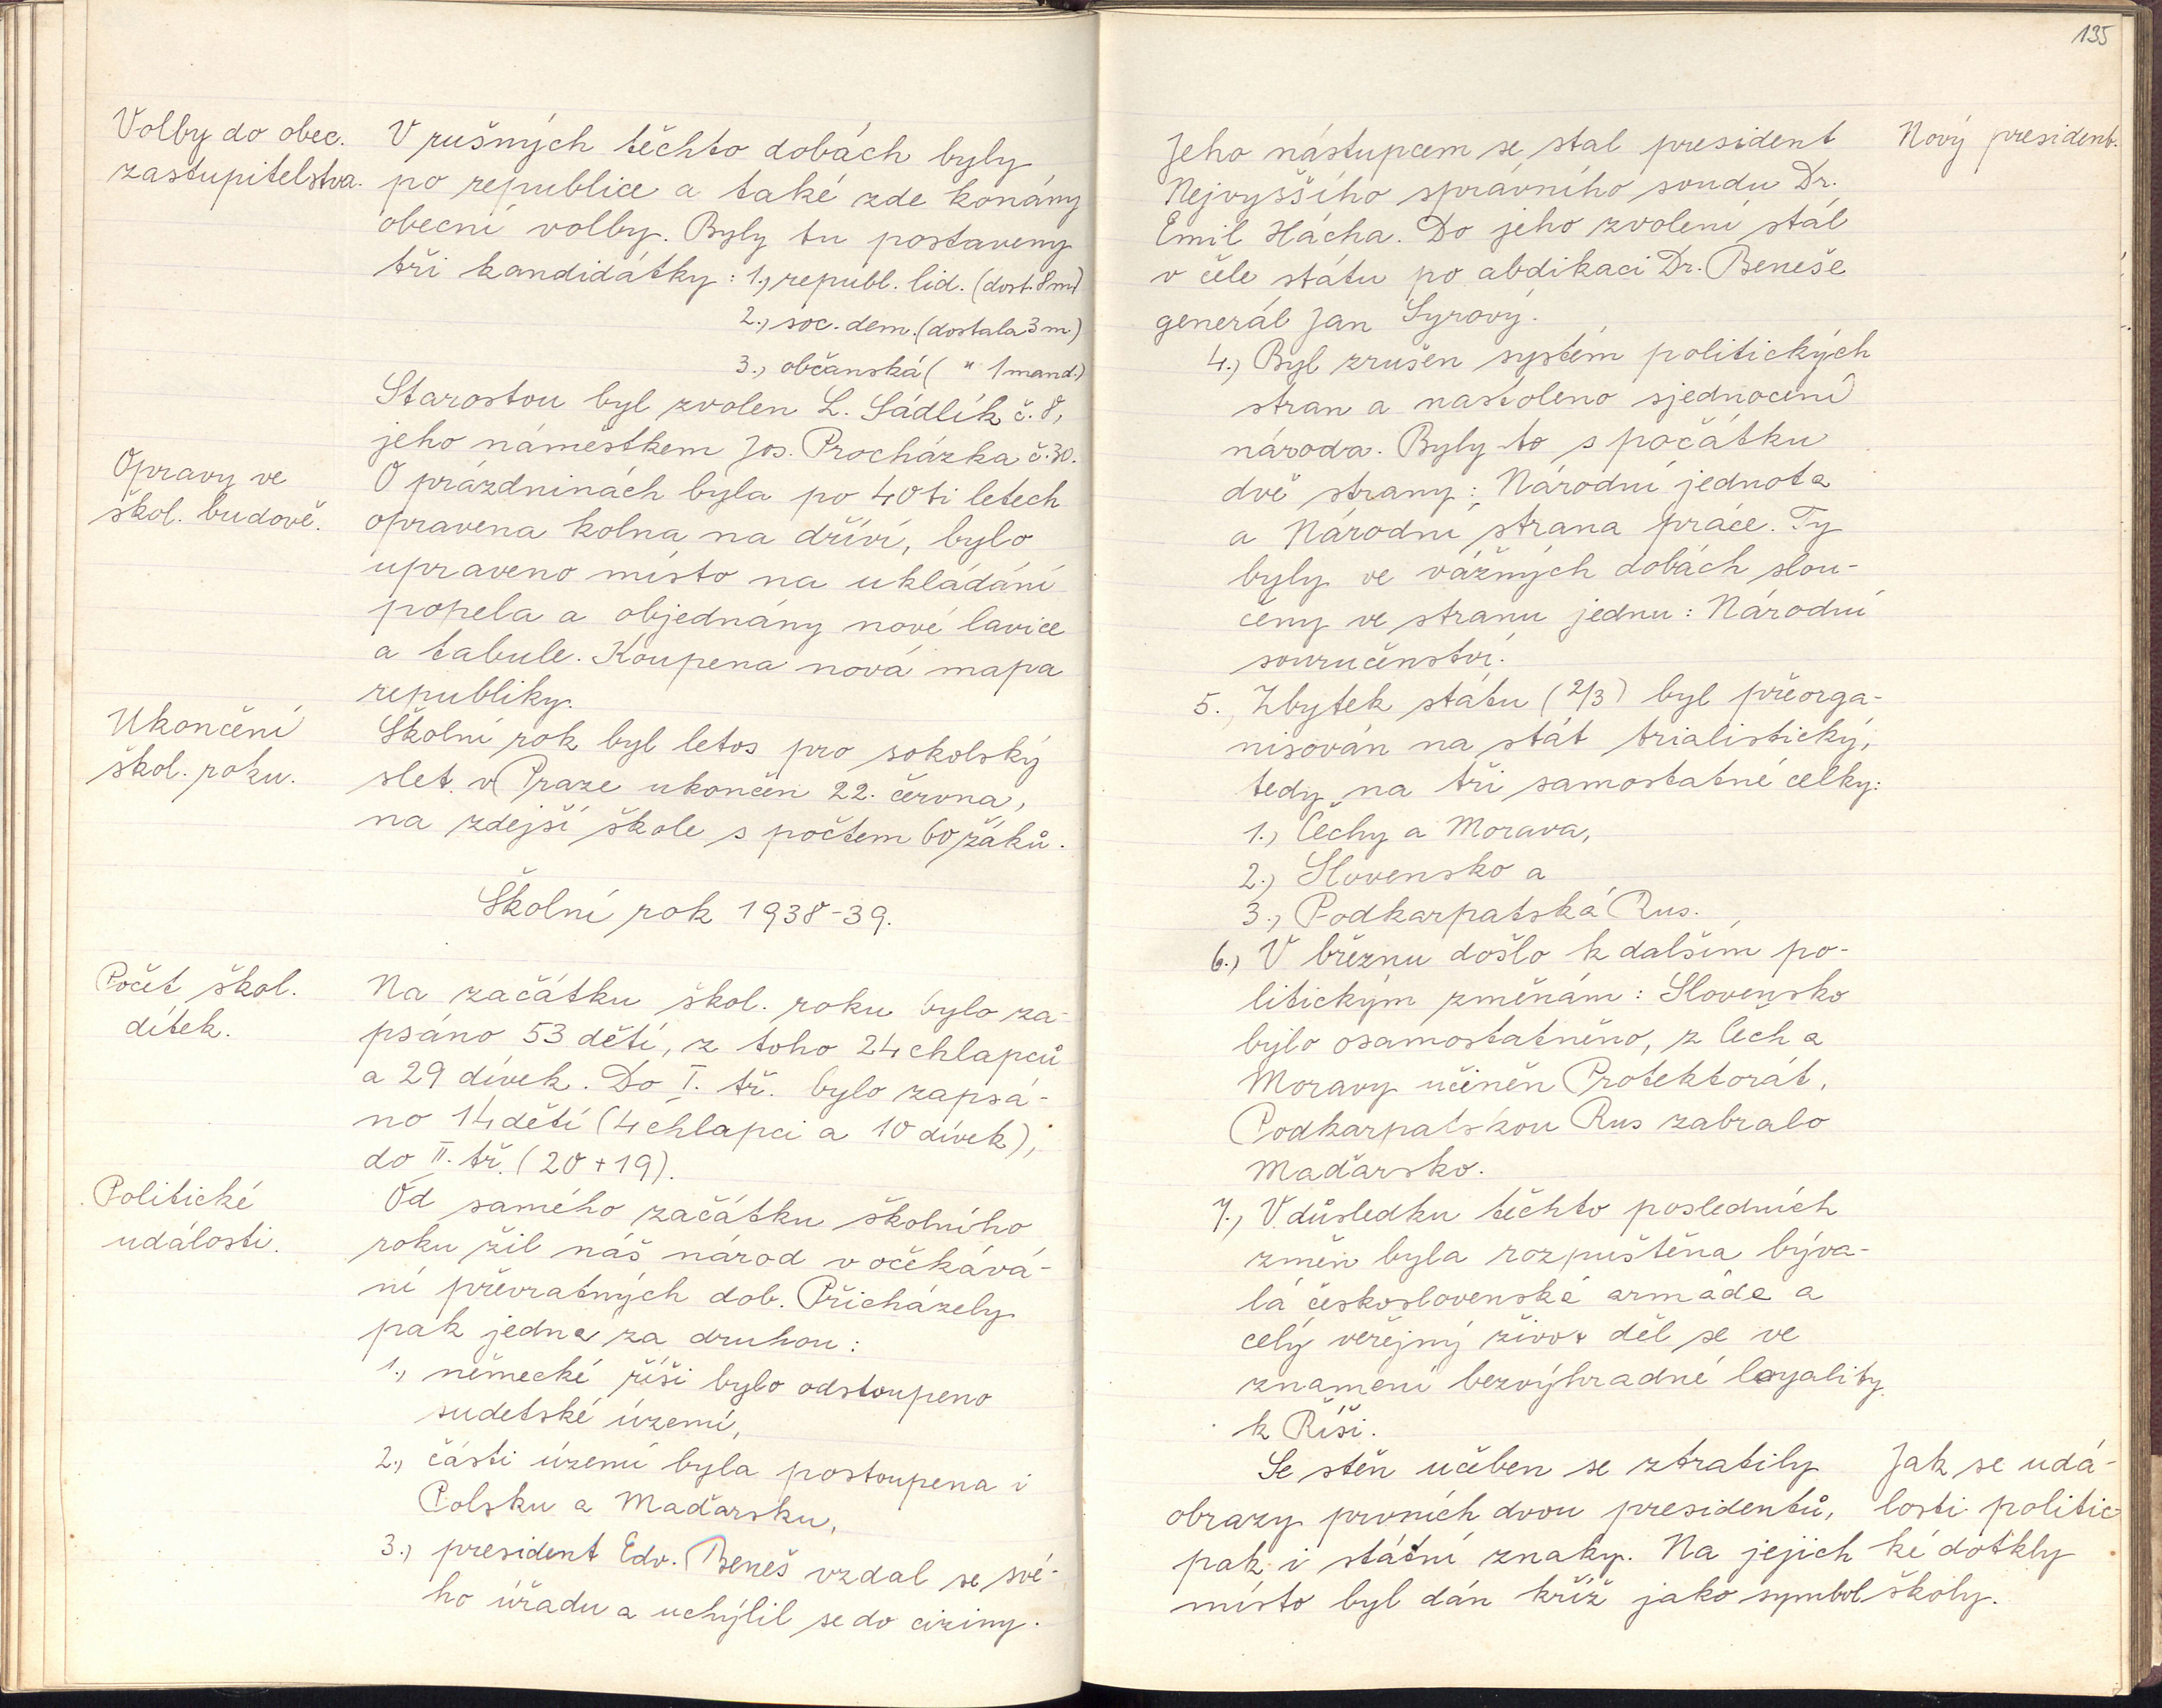 Volby do obec.
zastupitelstva.
V rušných těchto dobách byly
po republice a také zde konány
obecní volby. Byly tu postaveny
tři kandidátky: 1., republ. lid. (dost. 8 m)
2., soc. dem. (dostala 3 m.)
3., občanská ( " 1 mand.)
Starostou byl zvolen L. Sádlík č. 8,
jeho náměstkem Jos. Procházka č. 30.
Opravy ve
škol. budově.
O prázdninách byla po 40ti letech
opravena kolna na dříví, bylo
upraveno místo na ukládání
popela a objednány nové lavice
a tabule. Koupena nová mapa
republiky.
Ukončení
škol. roku.
Školní rok byl letos pro sokolský
slet v Praze ukončen 22. června,
na zdejší škole s počtem 60 žáků.
Školní rok 1938-39.
Počet škol.
dítek.
Na začátku škol. roku bylo za-
psáno 53 dětí, z toho 24 chlapců
a 29 dívek. Do I. tř. bylo zapsá-
no 14 dětí (4 chlapci a 10 dívek),
do II. tř. (20 + 19).
Politické
události.
Od samého začátku školního
roku žil náš národ v očekává-
ní převratných dob. Přicházely
pak jedna za druhou:
1., německé říši bylo odstoupeno
sudetské území,
2., části území byla postoupena i
Polsku a Maďarsku,
3., president Edv. Beneš vzdal se své-
ho úřadu a uchýlil se do ciziny.
135
Nový president.
Jeho nástupcem se stal president
Nejvyššího správního soudu Dr.
Emil Hácha. Do jeho zvolení stál
v čele státu po abdikaci Dr. Beneše
generál Jan Syrový.
4., Byl zrušen systém politických
stran a nastoleno sjednocení
národa. Byly to s počátku
dvě strany: Národní jednota
a Národní strana práce. Ty
byly ve vážných dobách slou-
čeny ve stranu jednu: Národní
souručenství.
5., Zbytek státu (2/3) byl přeorga-
nisován na stát trialistický,
tedy na tři samostatné celky:
1., Čechy a Morava,
2., Slovensko a
3., Podkarpatská Rus.
6., V březnu došlo k dalším po-
litickým změnám: Slovensko
bylo osamostatněno, z Čech a
Moravy učiněn Protektorát,
Podkarpatskou Rus zabralo
Maďarsko.
7., V důsledku těchto posledních
změn byla rozpuštěna býva-
lá československá armáda a
celý veřejný život děl se ve
znamení bezvýhradné loyality
k Říši.
Se stěn učeben se ztratily
obrazy prvních dvou presidentů,
pak i státní znaky. Na jejich
místo byl dán kříž jako symbol
Jak se udá-
losti politic-
ké dotkly
školy.